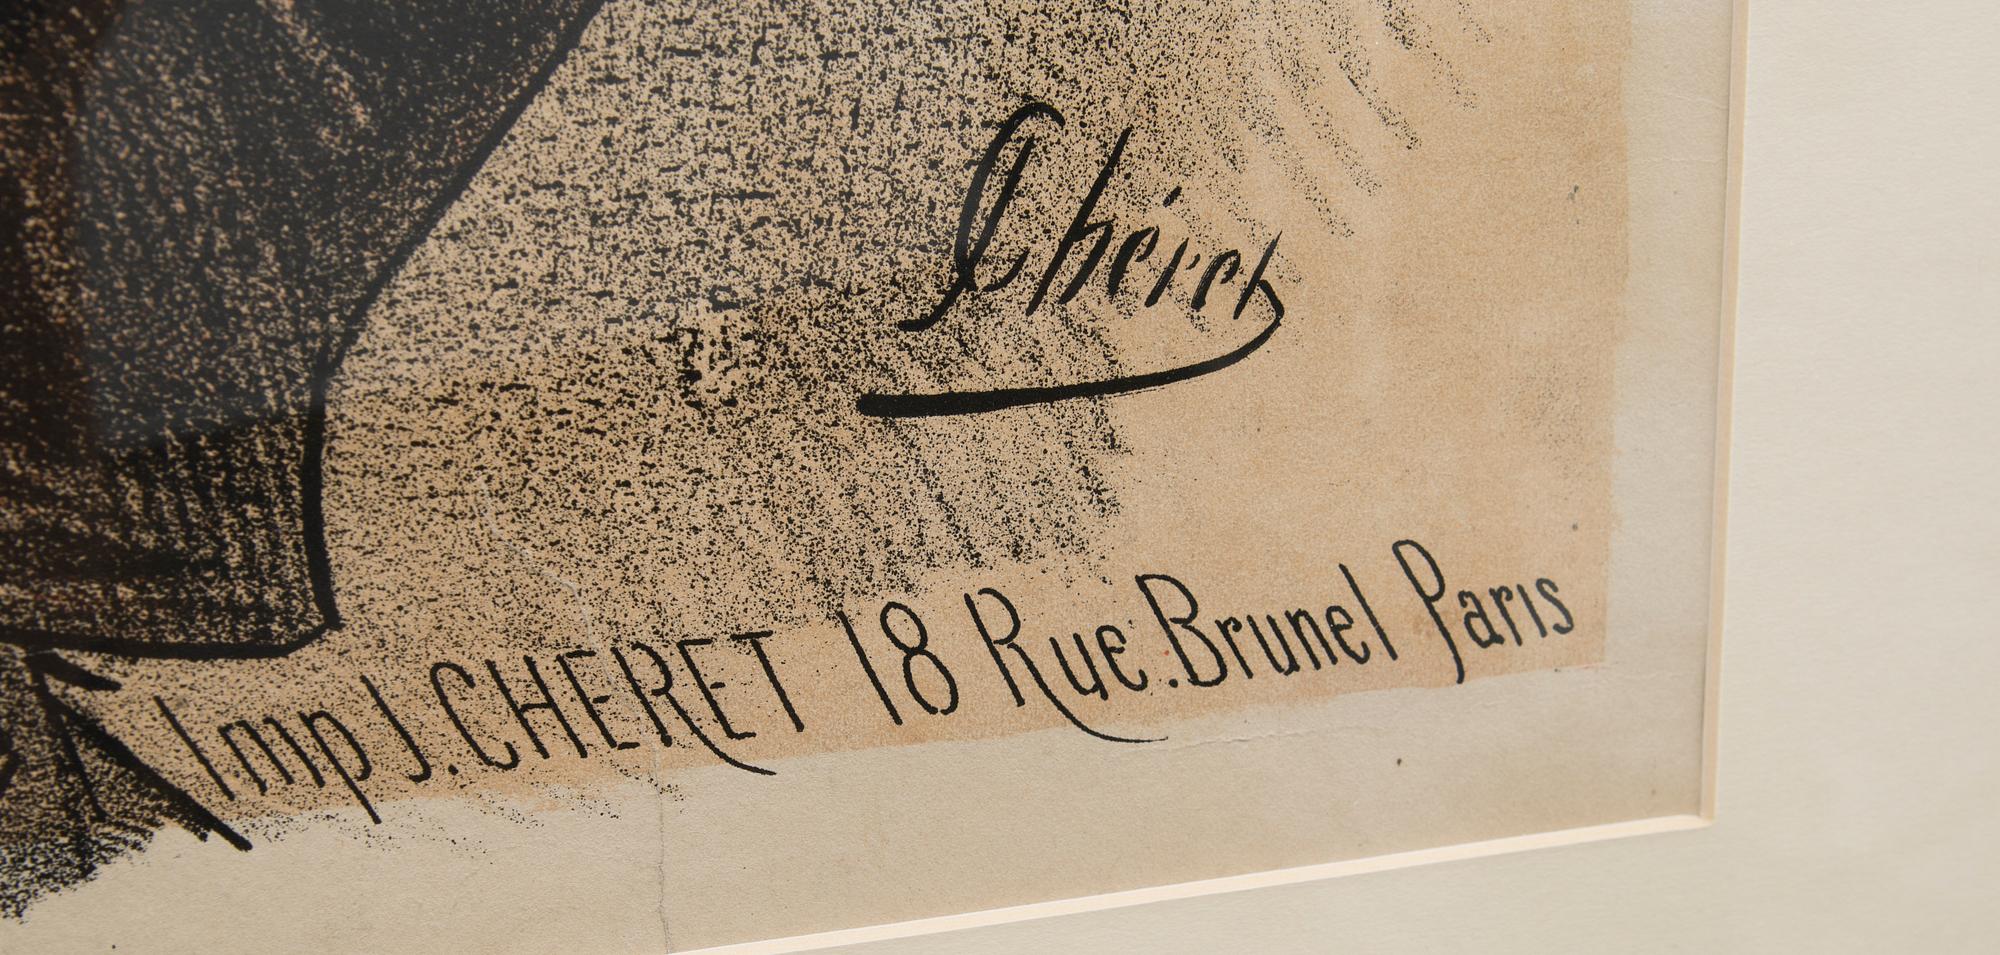 Chéret
Imp J. CHERET 18 Rue. Brunel Paris